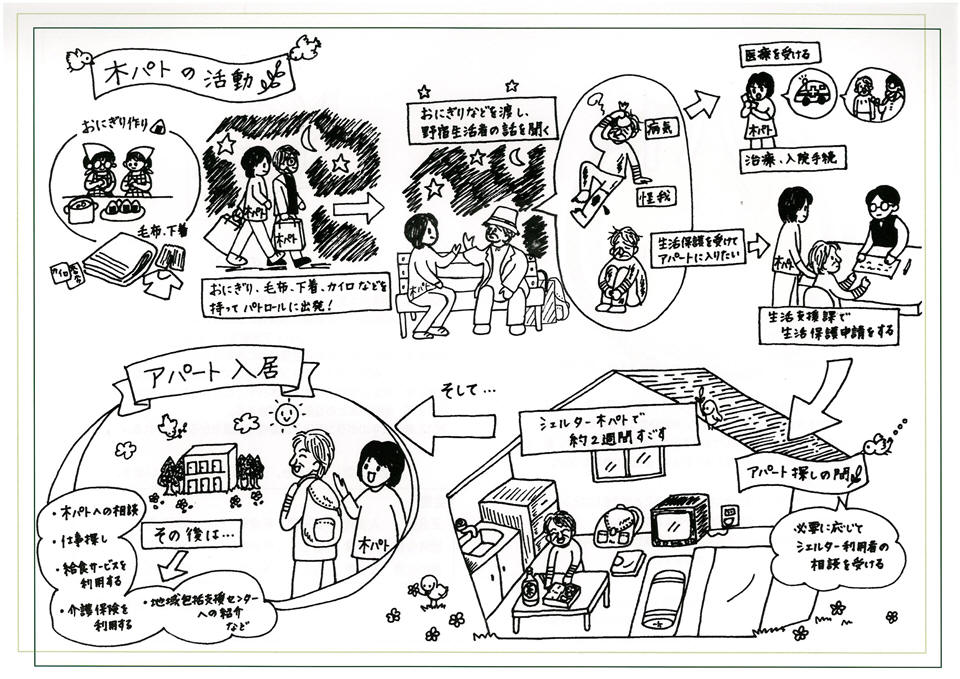 木パトの活動
おにぎり作り
毛布、下着
カイロ
木パト
木パト
おにぎり、毛布、下着、カイロなどを
持ってパトロールに出発！
おにぎりなどを渡し、
野宿生活者の話を聞く
木パト
病気
怪我
生活保護を受けて
アパートに入りたい
医療を受ける
木パト
治療、入院手続
木パト
生活支援課で
生活保護申請をする
アパート探しの間
必要に応じて
シェルター利用者の
相談を受ける
シェルター木パトで
約2週間すごす
そして…
アパート入居
木パト
その後は…
・木パトへの相談
・仕事探し
・給食サービスを
利用する
・介護保険を
利用する
・地域包括支援センター
への紹介
など